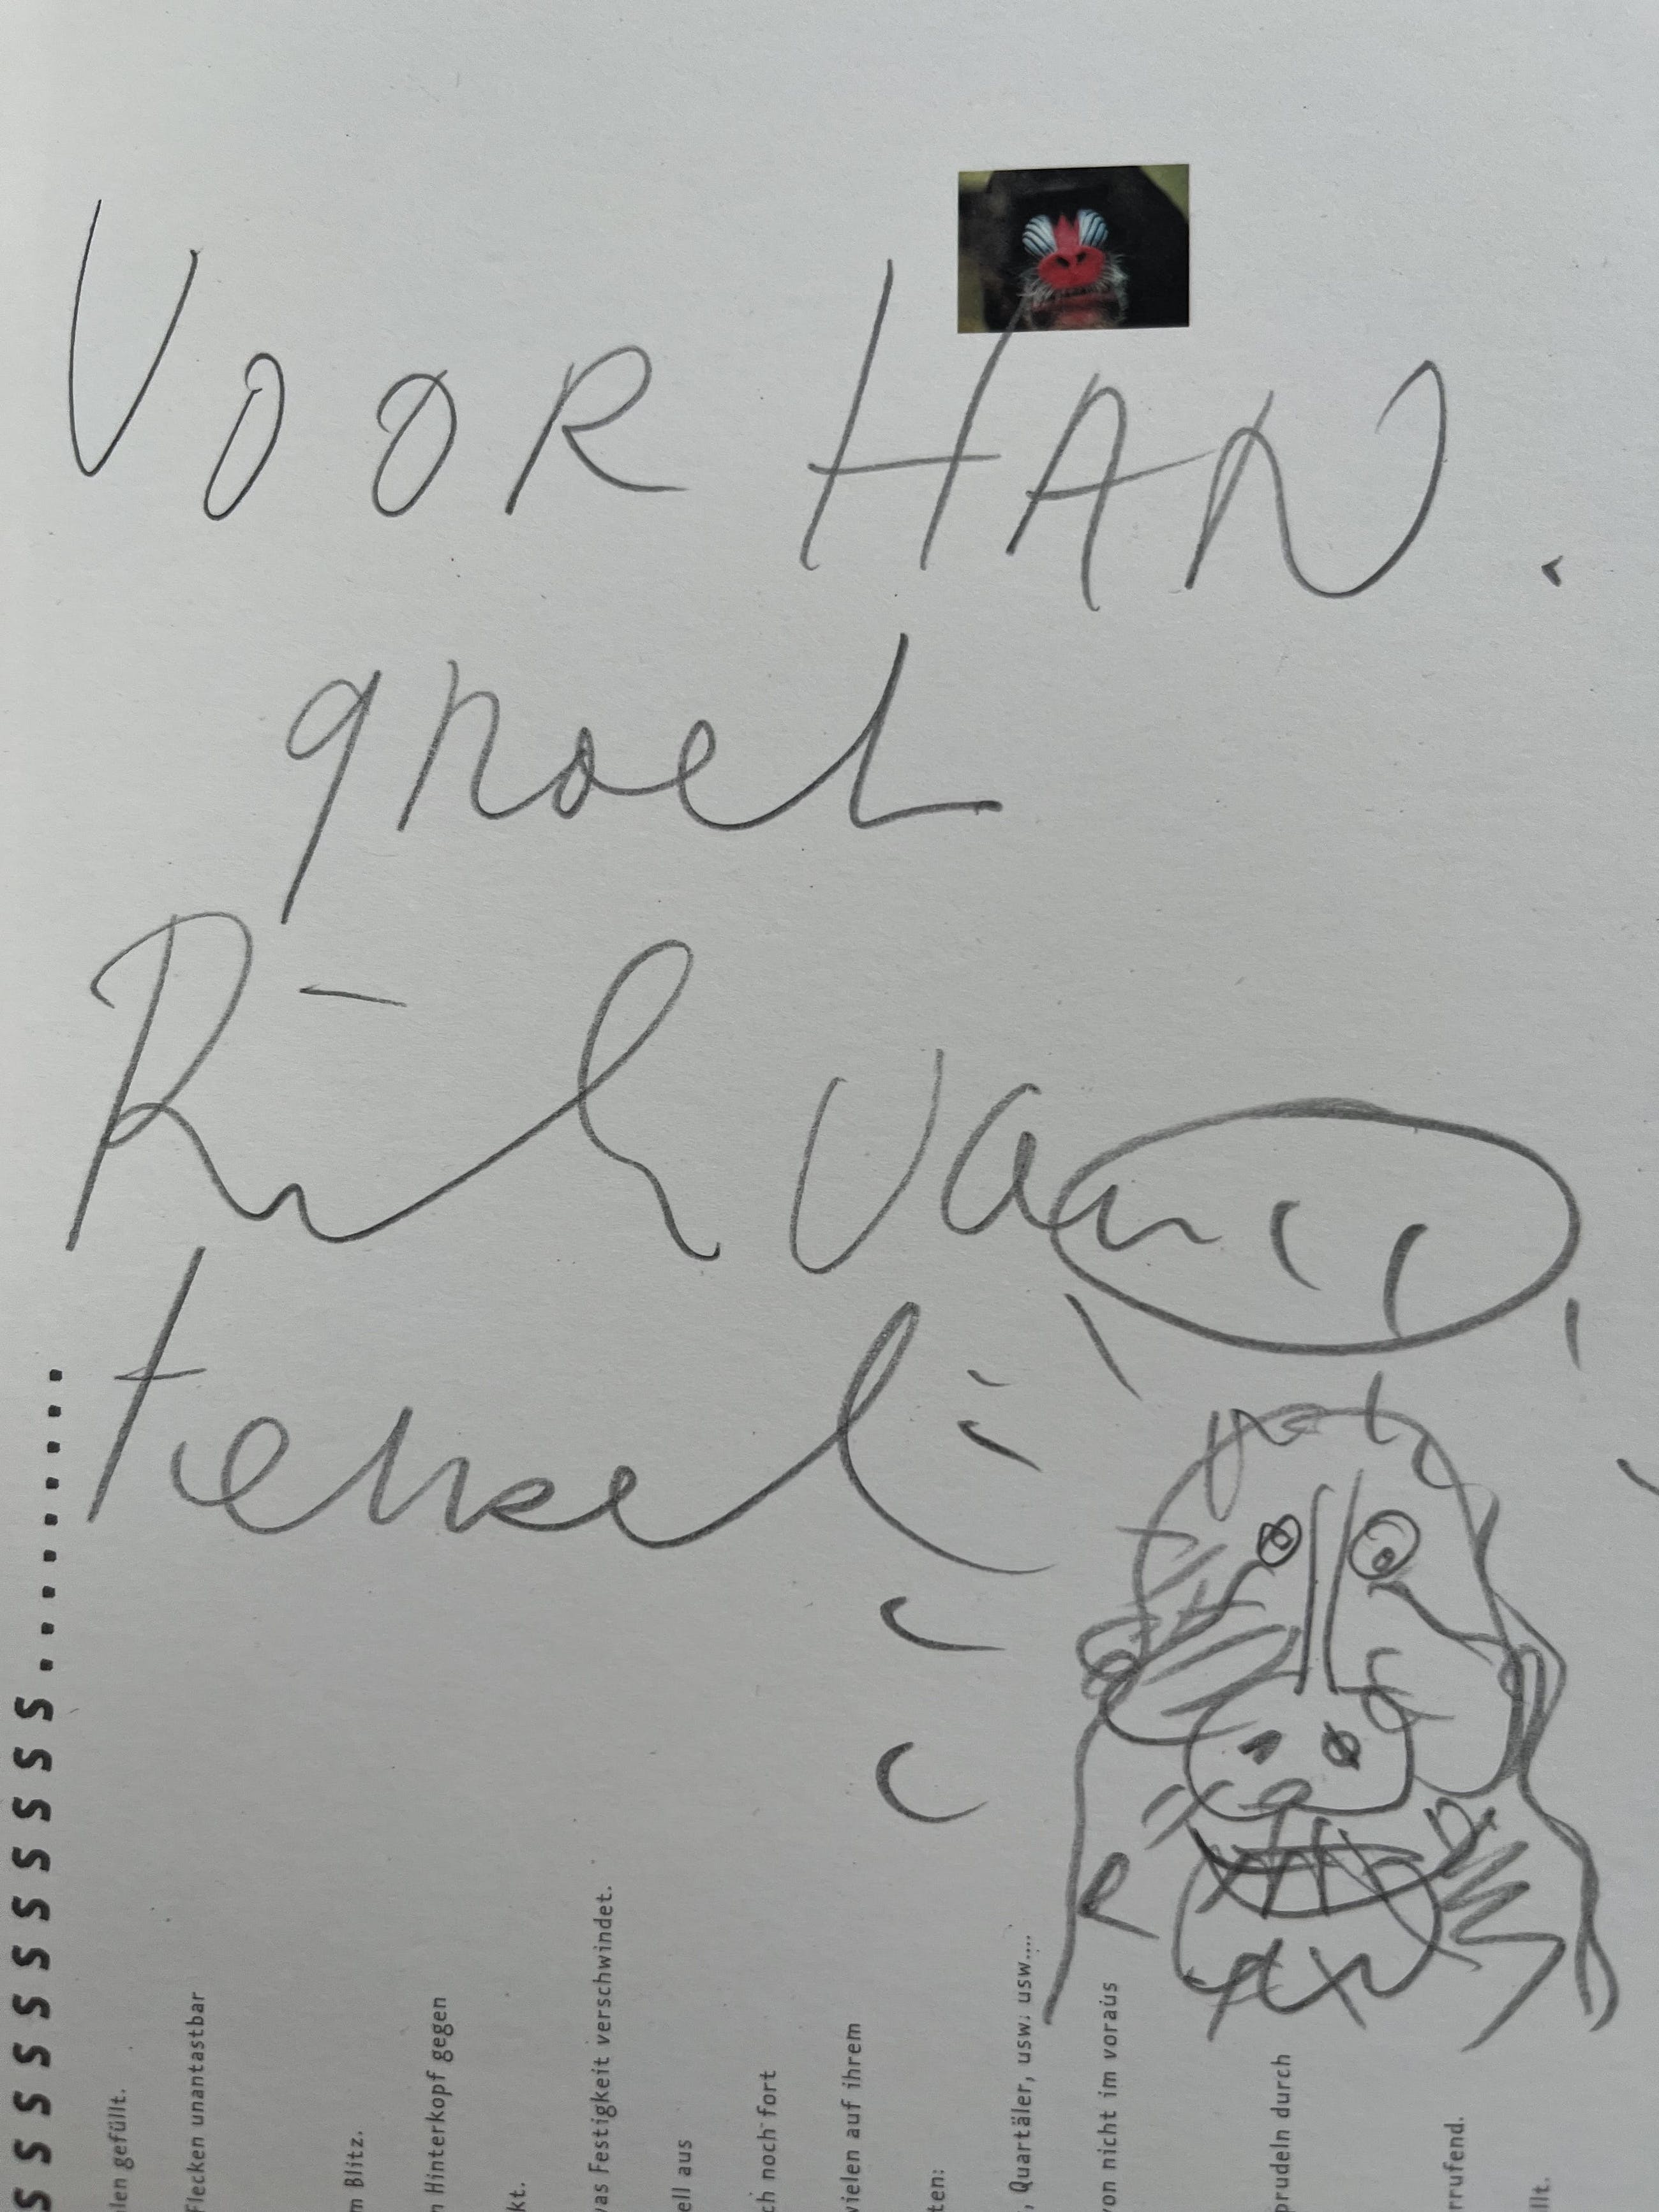 VOOR HAN.
groet
Rik van
Iersel
SSSSSSSSSSS.........
len gefüllt.
Flecken unantastbar
m Blitz.
n Hinterkopf gegen
kt.
was Festigkeit verschwindet.
ell aus
ch noch fort
vielen auf ihrem
ten:
, Quartäler, usw. usw....
von nicht im voraus
prudeln durch
rrufend.
llt.